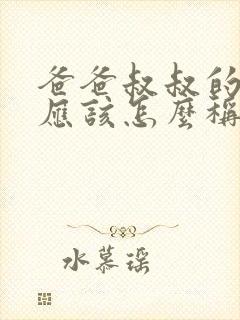 爸爸叔叔的
應該怎麼稱
水慕瑤